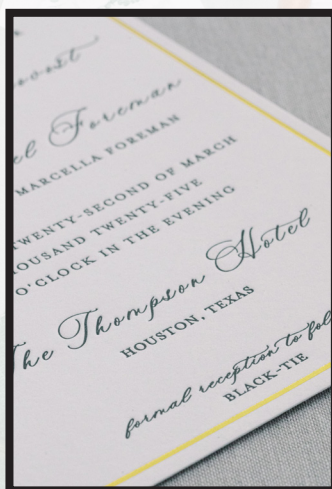 el Foreman
MARCELLA FOREMAN
TWENTY-SECOND OF MARCH
OUSAND TWENTY-FIVE
O'CLOCK IN THE EVENING
The Thompson Hotel
HOUSTON, TEXAS
formal reception to fol
BLACK-TIE